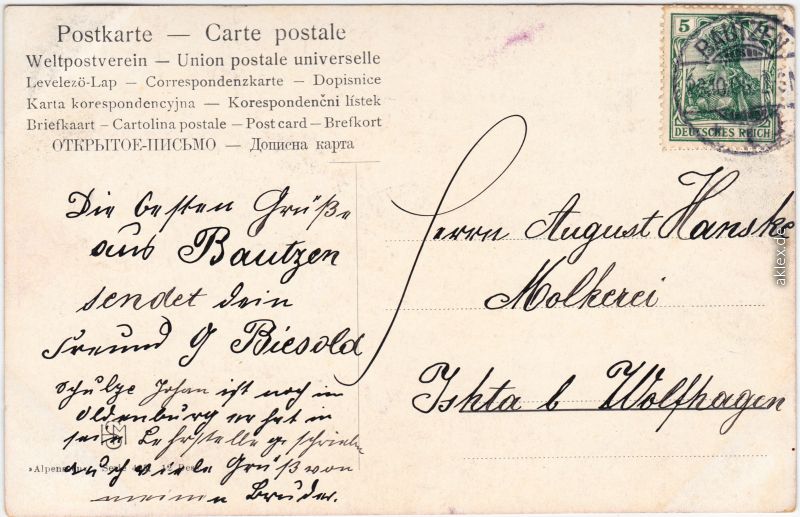 Postkarte — Carte postale
Weltpostverein — Union postale universelle
Levelező-Lap — Correspondenzkarte — Dopisnice
Karta korespondencyjna — Korespondenčni lístek
Briefkaart — Cartolina postale — Post card — Brefkort
ОТКРЫТОЕ-ПИСЬМО — Дописна карта
5
DEUTSCHES REICH
BAUTZEN
Die besten Grüße
aus Bautzen
sendet dein
Freund G Biesold
Schulze Johan ist noch in
Oldenburg er hat in
sein Lehrstelle geschrieben
auch viele Grüß von
meinen Bruder.
Herrn August Hanske
Molkerei
Ishta b Wolfhagen
»Alpen Serie
aklex.de